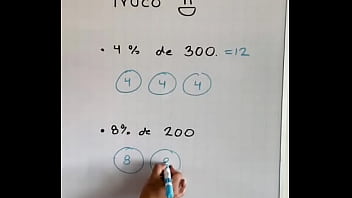 TRUCO
• 4% de 300. = 12
4 4 4
• 8% de 200
8 8